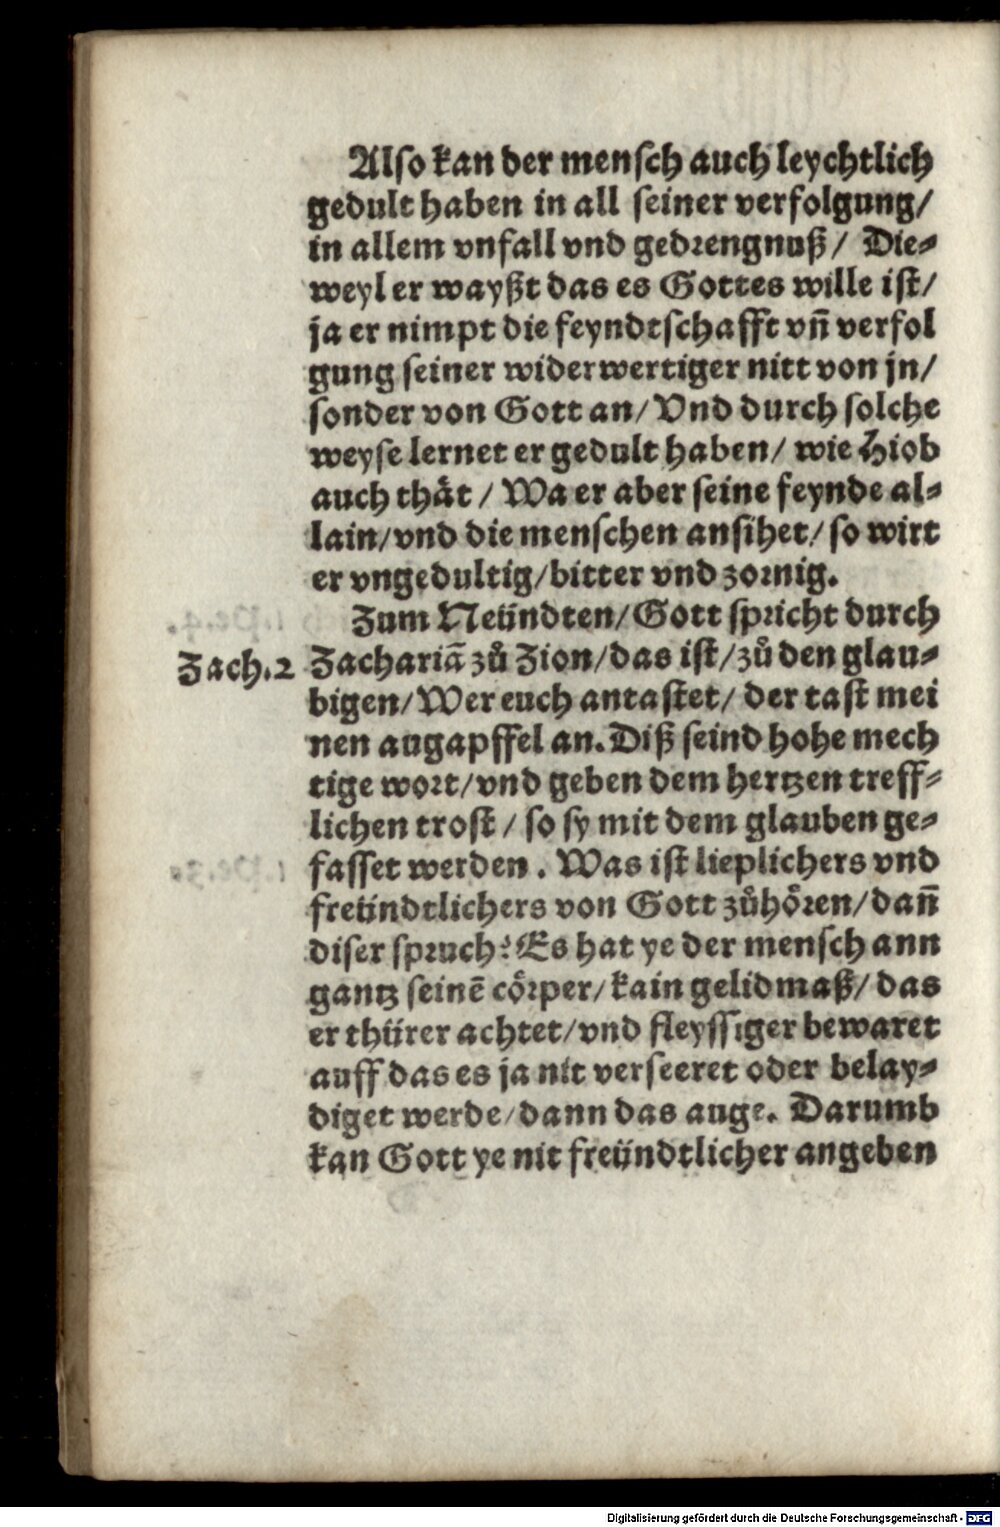 Also kan der mensch auch leychtlich
gedult haben in all seiner verfolgung/
in allem vnfall vnd gedrengnuß/ Die⸗
weyl er wayßt das es Gottes wille ist/
ja er nimpt die feyndtschafft vñ verfol
gung seiner widerwertiger nitt von jn/
sonder von Gott an/ Vnd durch solche
weyse lernet er gedult haben/ wie Hiob
auch thaͤt / Wa er aber seine feynde al⸗
lain/vnd die menschen ansihet/ so wirt
er vngedultig/bitter vnd zornig.
Zum Neündten/Gott spricht durch
Zach.2 Zachariã zů Zion/das ist/zů den glau⸗
bigen/Wer euch antastet/ der tast mei
nen augapffel an. Diß seind hohe mech
tige wort/vnd geben dem hertzen treff⸗
lichen trost / so sy mit dem glauben ge⸗
fasset werden. Was ist lieplichers vnd
freündtlichers von Gott zůhoͤren/dañ
diser spruch? Es hat ye der mensch ann
gantz seinē coͤrper/kain gelidmaß/ das
er thürer achtet/vnd fleyssiger bewaret
auff das es ja nit verseeret oder belay⸗
diget werde/dann das auge. Darumb
kan Gott ye nit freündtlicher angeben
Digitalisierung gefördert durch die Deutsche Forschungsgemeinschaft - DFG